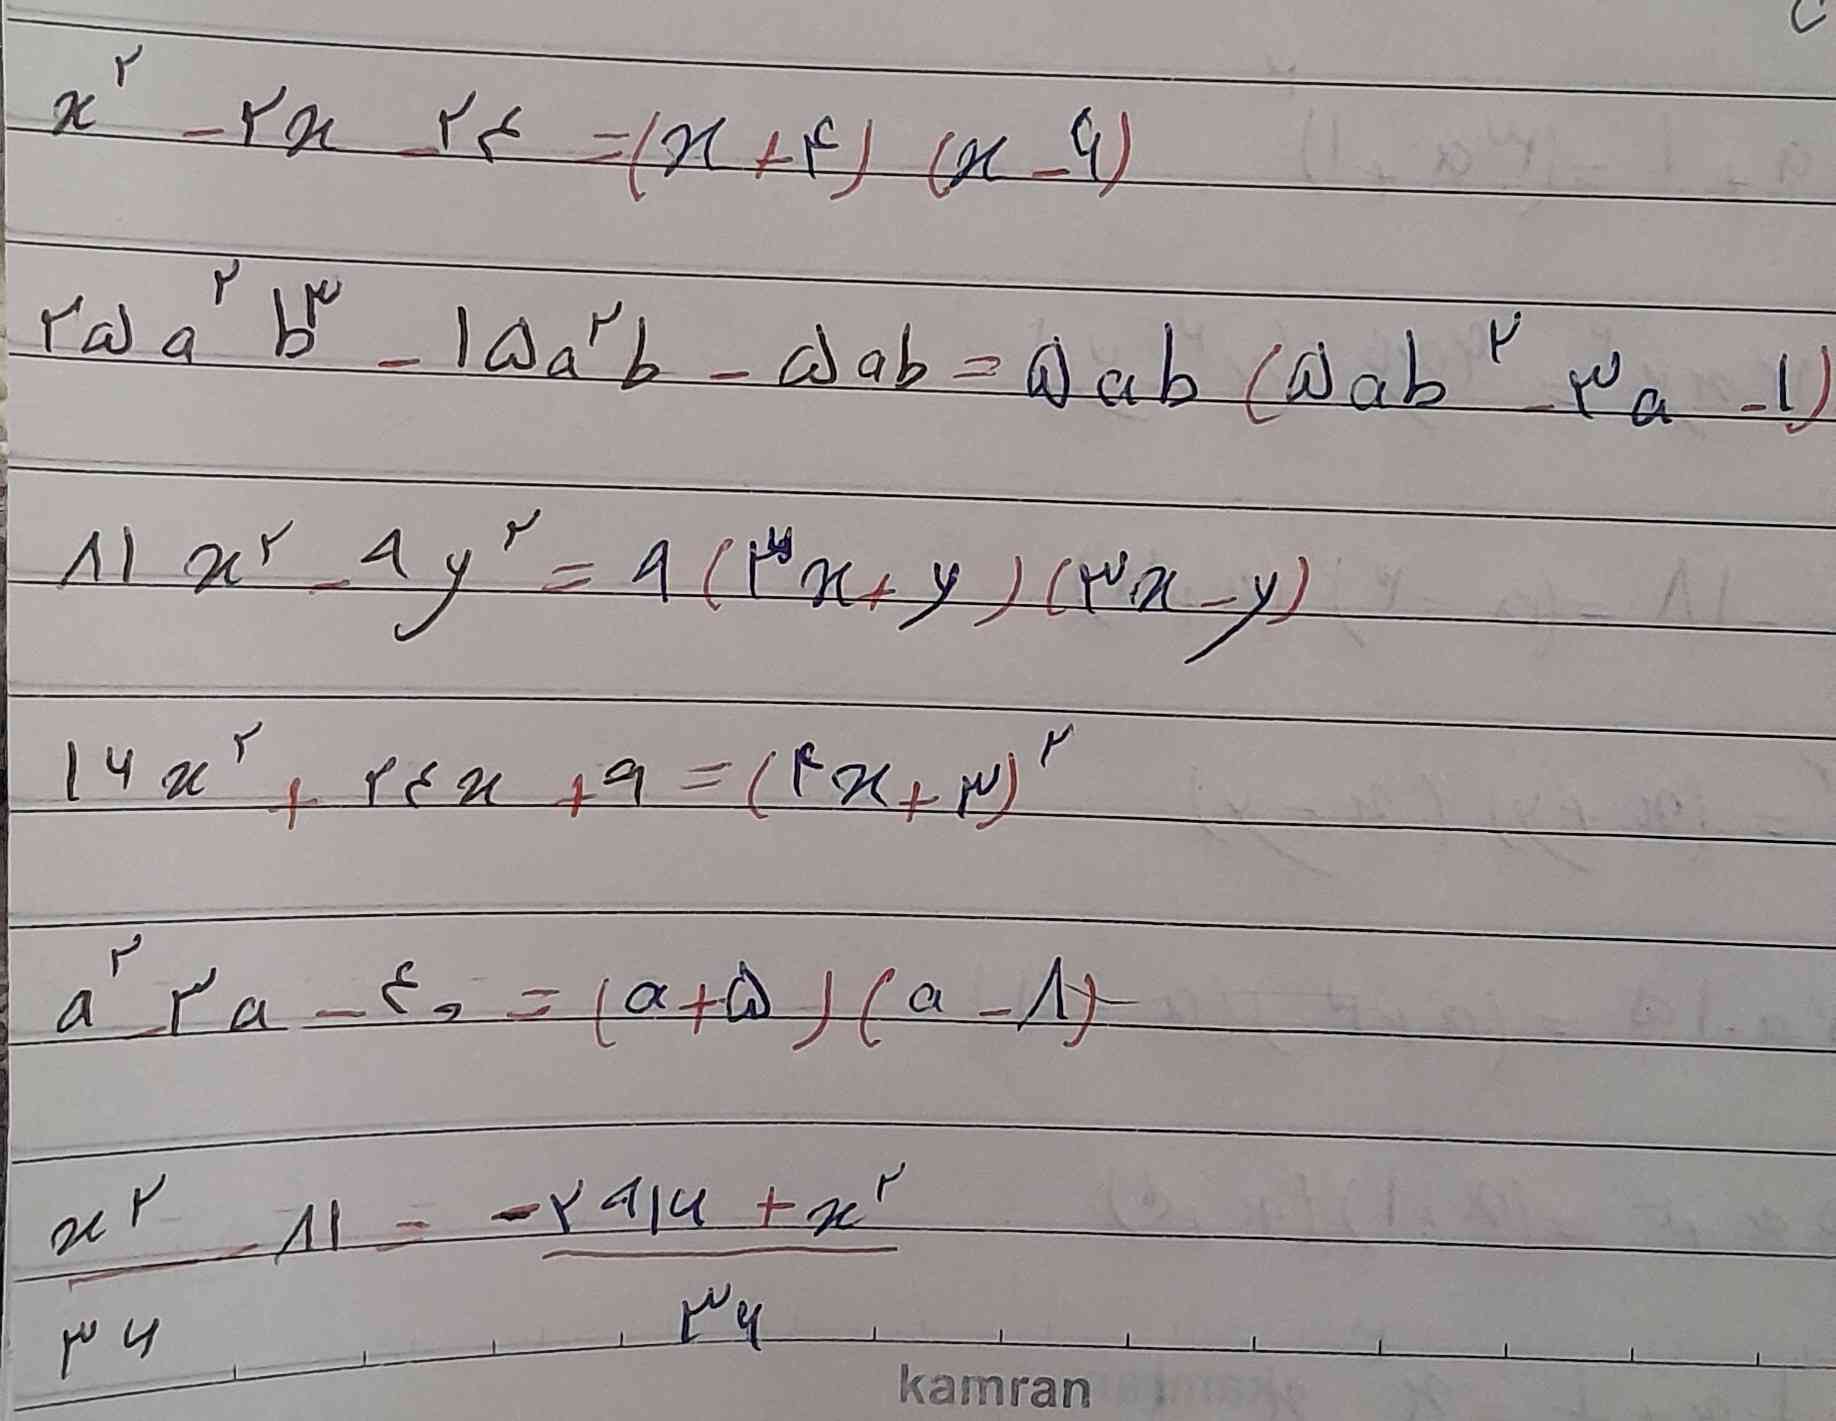 x^۲ - ۲x - ۲۴ = (x + ۴) (x - ۶)
۲۵a^۲ b^۳ - ۱۵a^۲b - ۵ab = ۵ab (۵ab^۲ - ۳a - ۱)
۸۱x^۲ - ۹y^۲ = ۹(۳x + y)(۳x - y)
۱۶x^۲ + ۲۴x + ۹ = (۴x + ۳)^۲
a^۲ - ۳a - ۴۰ = (a + ۵)(a - ۸)
x^۲/۳۶ - ۸۱ = (-۲۹۱۶ + x^۲)/۳۶
kamran